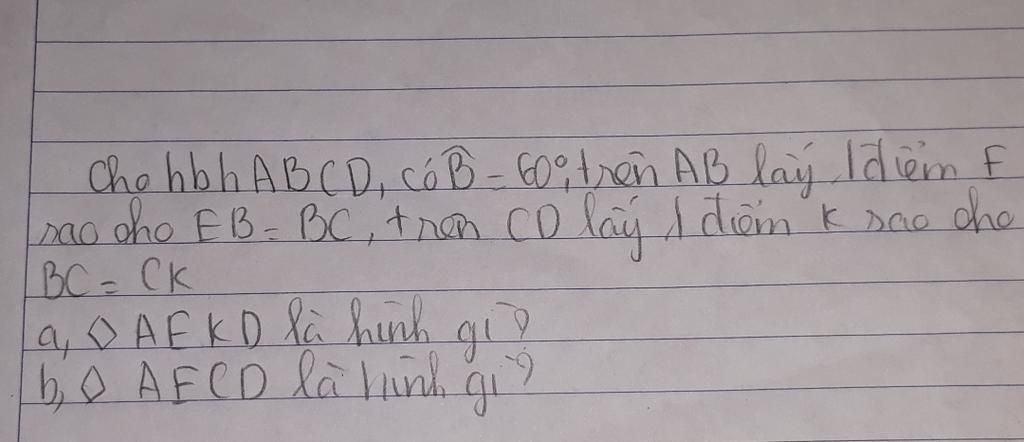 Cho hbh ABCD, có B̂ = 60°, trên AB lấy 1 điểm E
sao cho EB = BC, trên CD lấy 1 điểm K sao cho
BC = CK
a, ◇ AEKD là hình gì?
b, ◇ AECD là hình gì?